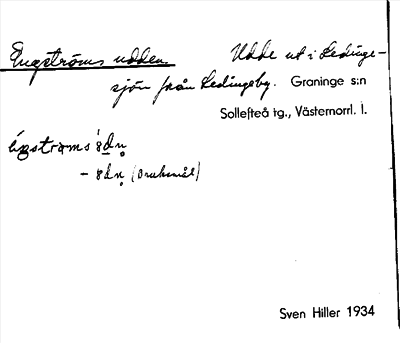 Engströms udden Udde ut i Ledinge-
sjön från Ledingeby. Graninge s:n
Sollefteå tg., Västernorrl. l.
- (bruksmål)
Sven Hiller 1934